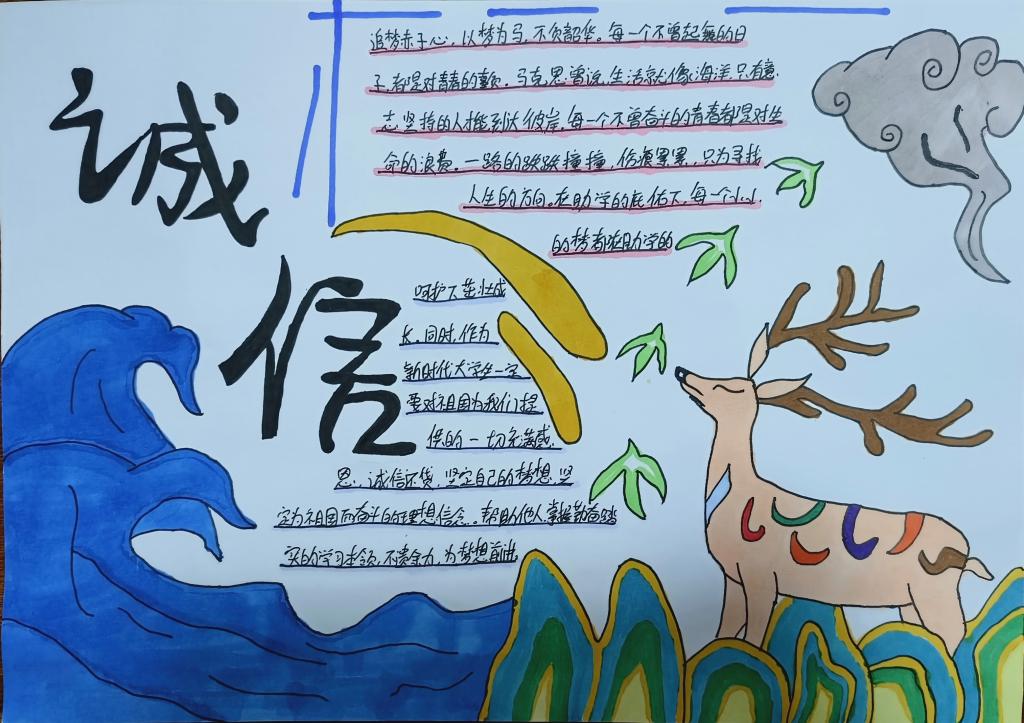 诚
信
追梦赤子心，以梦为马，不负韶华。每一个不曾起舞的日
子，都是对青春的辜负。马克思曾说，生活就像海洋，只有意
志坚持的人才能到达彼岸，每一个不曾奋斗的青春都是对生
命的浪费。一路的跌跌撞撞，伤痕累累，只为寻找
人生的方向。在助学的庇佑下，每一个小小
的梦都在助学的
呵护下茁壮成
长。同时，作为
新时代大学生一定
要对祖国为我们提
供的一切充满感
恩，诚信还贷，坚定自己的梦想，坚
定为祖国而奋斗的理想信念。帮助他人，掌握勤奋踏
实的学习本领，不遗余力，为梦想前进